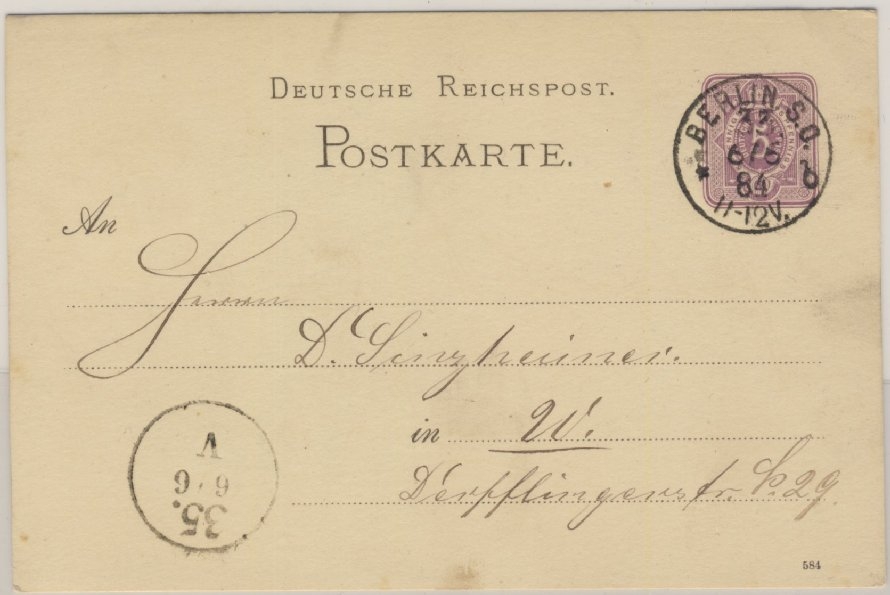 DEUTSCHE REICHSPOST.
POSTKARTE.
BERLIN S.O.
6/6
84
11-12V.
An
Herrn
Dr. Sinzheimer.
in W.
Derfflingerstr. 29.
35.
6/6
V
584